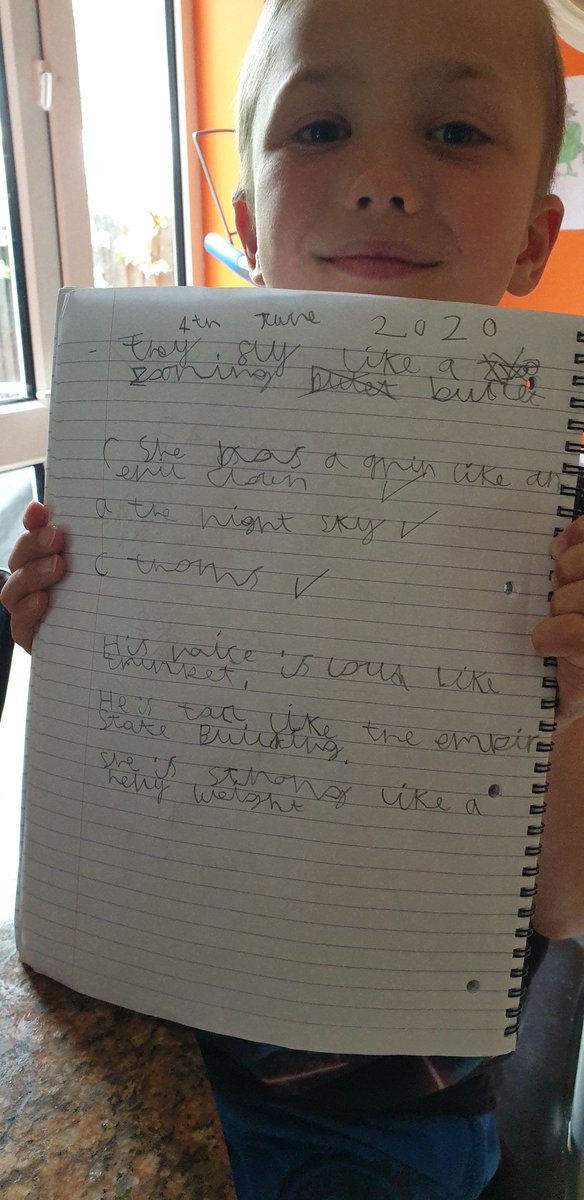 4th June 2020
They fly like a
zooming bullet
C She has a grin like an
evil clown ✓
a the night sky ✓
C thorns ✓
His voice is loud like
trumpet.
He is tall like the empir
State Building.
She is strong like a
hevy weight